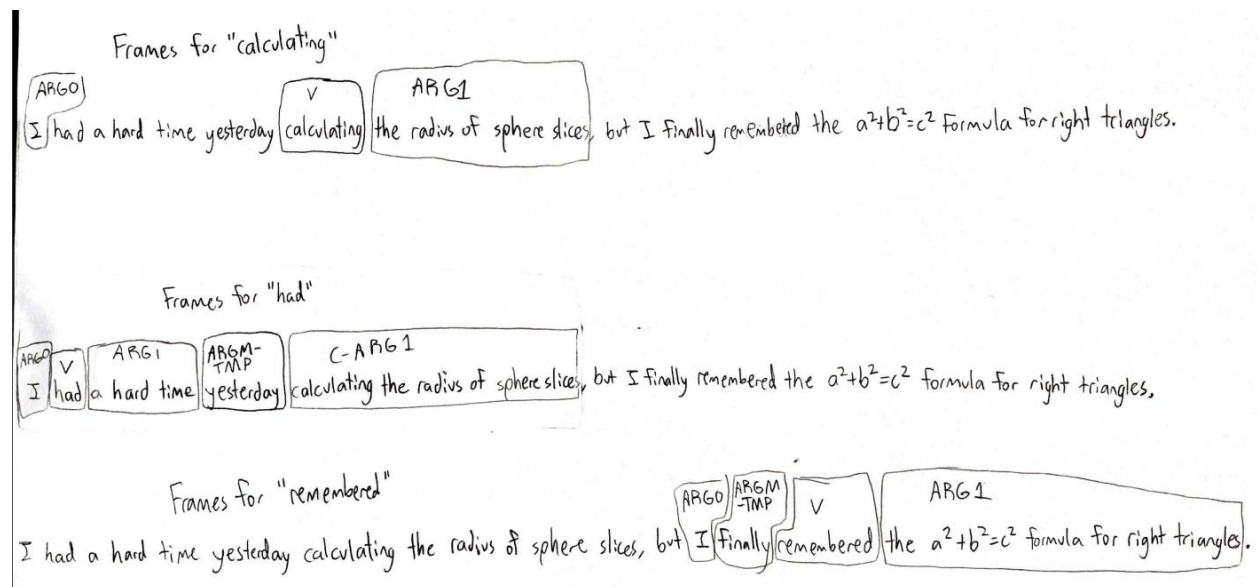 Frames for "calculating"
ARG0 V ARG1
I had a hard time yesterday calculating the radius of sphere slices, but I finally remembered the a²+b²=c² formula for right triangles.
Frames for "had"
ARG0 V ARG1 ARGM-TMP C-ARG1
I had a hard time yesterday calculating the radius of sphere slices, but I finally remembered the a²+b²=c² formula for right triangles.
Frames for "remembered"
ARG0 ARGM-TMP V ARG1
I had a hard time yesterday calculating the radius of sphere slices, but I finally remembered the a²+b²=c² formula for right triangles.